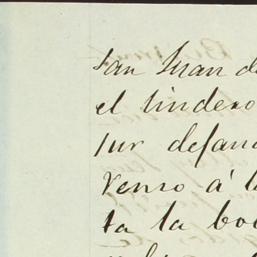 San Juan d
el lindero
sur defan
Venso á l
ta la bo